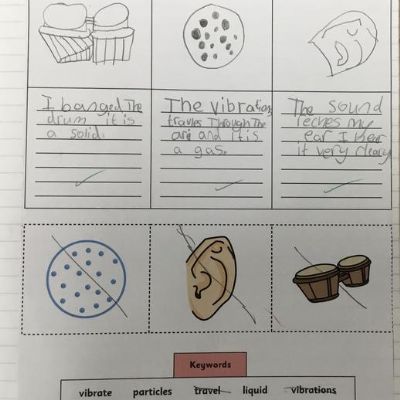 I banged The
drum it is
a solid.
The vibrations
travles Through The
are and it is
a gas.
The sound
reches my
ear I hear
it very cleary
Keywords
vibrate particles travel liquid vibrations